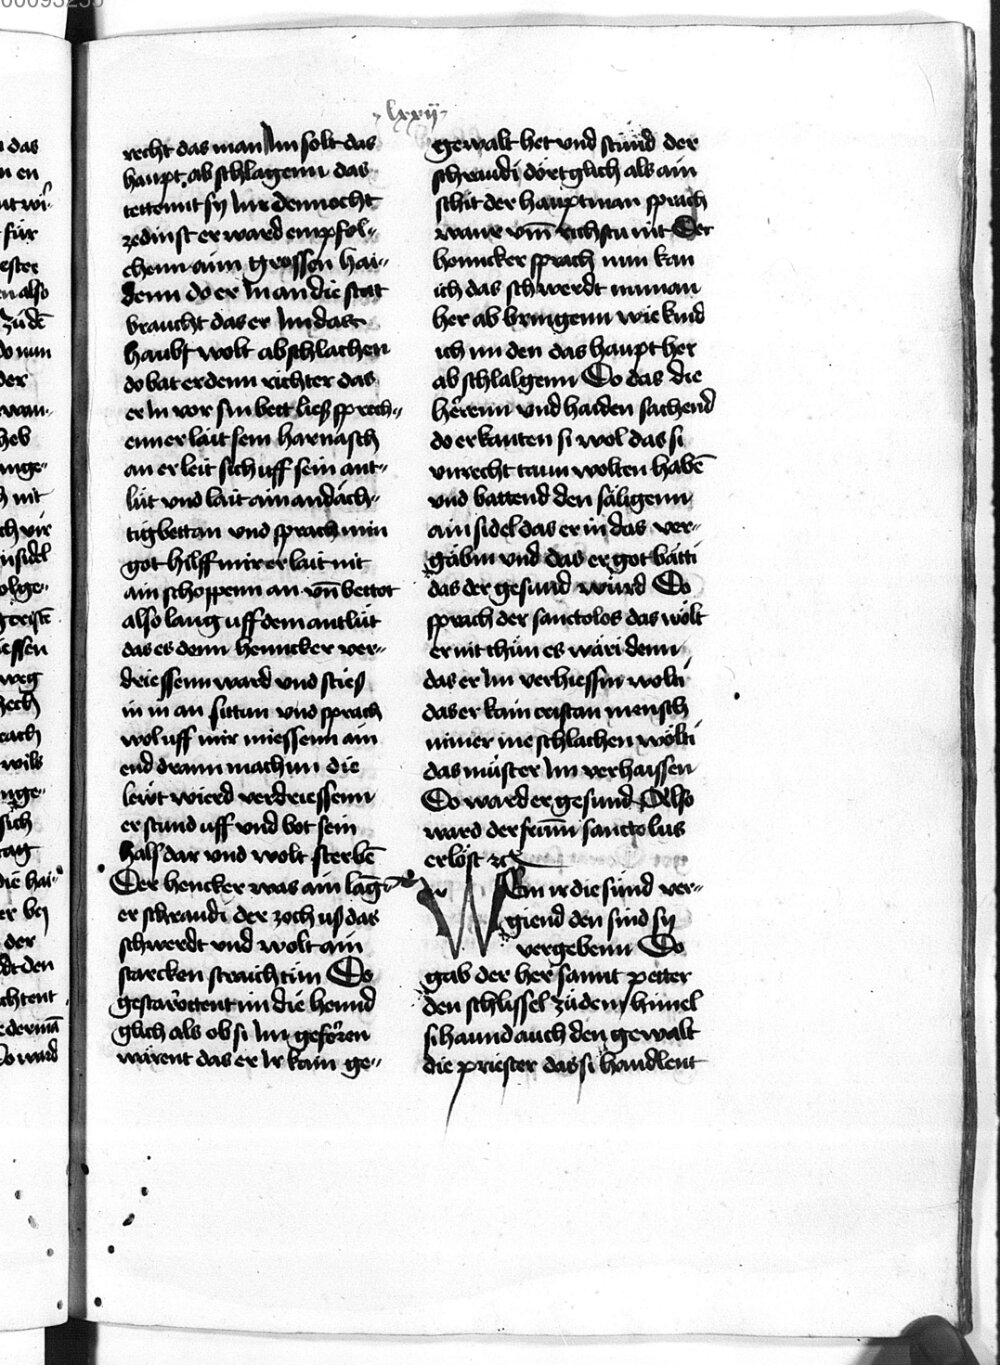 lxxij
recht das man Im solt das
haupt ab schlagenn das
tettennt sy Im dennocht
zedinst er ward empfol-
chenn aim grossen hai-
denn do er In an die stat
braucht das er Im das
haubt wolt abschlachen
do bat er denn richter das
er In vor sin bett liesz sprech-
enn er lait sein harnasch
an er leit sich uff sein ant-
lüt vnd lait ain andäch-
tig bettan vnd sprach min
got hilff mir er lait nit
ain schoppenn an vn̄ bettot
also lang uff dem antlüt
das es denn henncker ver-
driessenn ward vnd sties
in in an sittan vnd sprach
wol uff mir miessenn ain
end drann machun die
lewt wierd verdriessenn
er stund uff vnd bot sein
hals dar vnd wolt sterbē
Der hencker was ain lāg
er schraudi der zoch us das
schwerdt vnd wolt ain
starcken straich tun Do
gestarottent im die hennd
glich als ob si Im gefören
wärent das er Ir kain ge-
gewalt het vnd stund der
schraudi dört glich als ain
schit der hauptman sprach
waur vm̄ richstu nit Der
henncker sprach nun kan
ich das schwerdt numan
her ab bringenn wie kind
ich im den das haupt her
ab schlalgenn Do das die
herenn vnd haiden sachend
do erkanten si wol das si
vnrecht taun wolten habē
vnd battend den säligenn
ainsidel das er in das ver-
gäbin vnd das er got bätti
das der gesund würd Do
sprach der sanctolos das wölt
er nit thün es wäri denn
das er Im verhiessin wolti
das er kain cristan mensch
nimer me schlachen wölti
das müster Im verhaissen
Do ward er gesund Also
ward der frum̄ sanctolus
erlöst ꝛc
Wem ir die sünd ver-
giend den sind sy
vergebenn Do
gab der her sannt petter
den schlissel zu dem himel
si haund auch den gewalt
die priester das si handlent